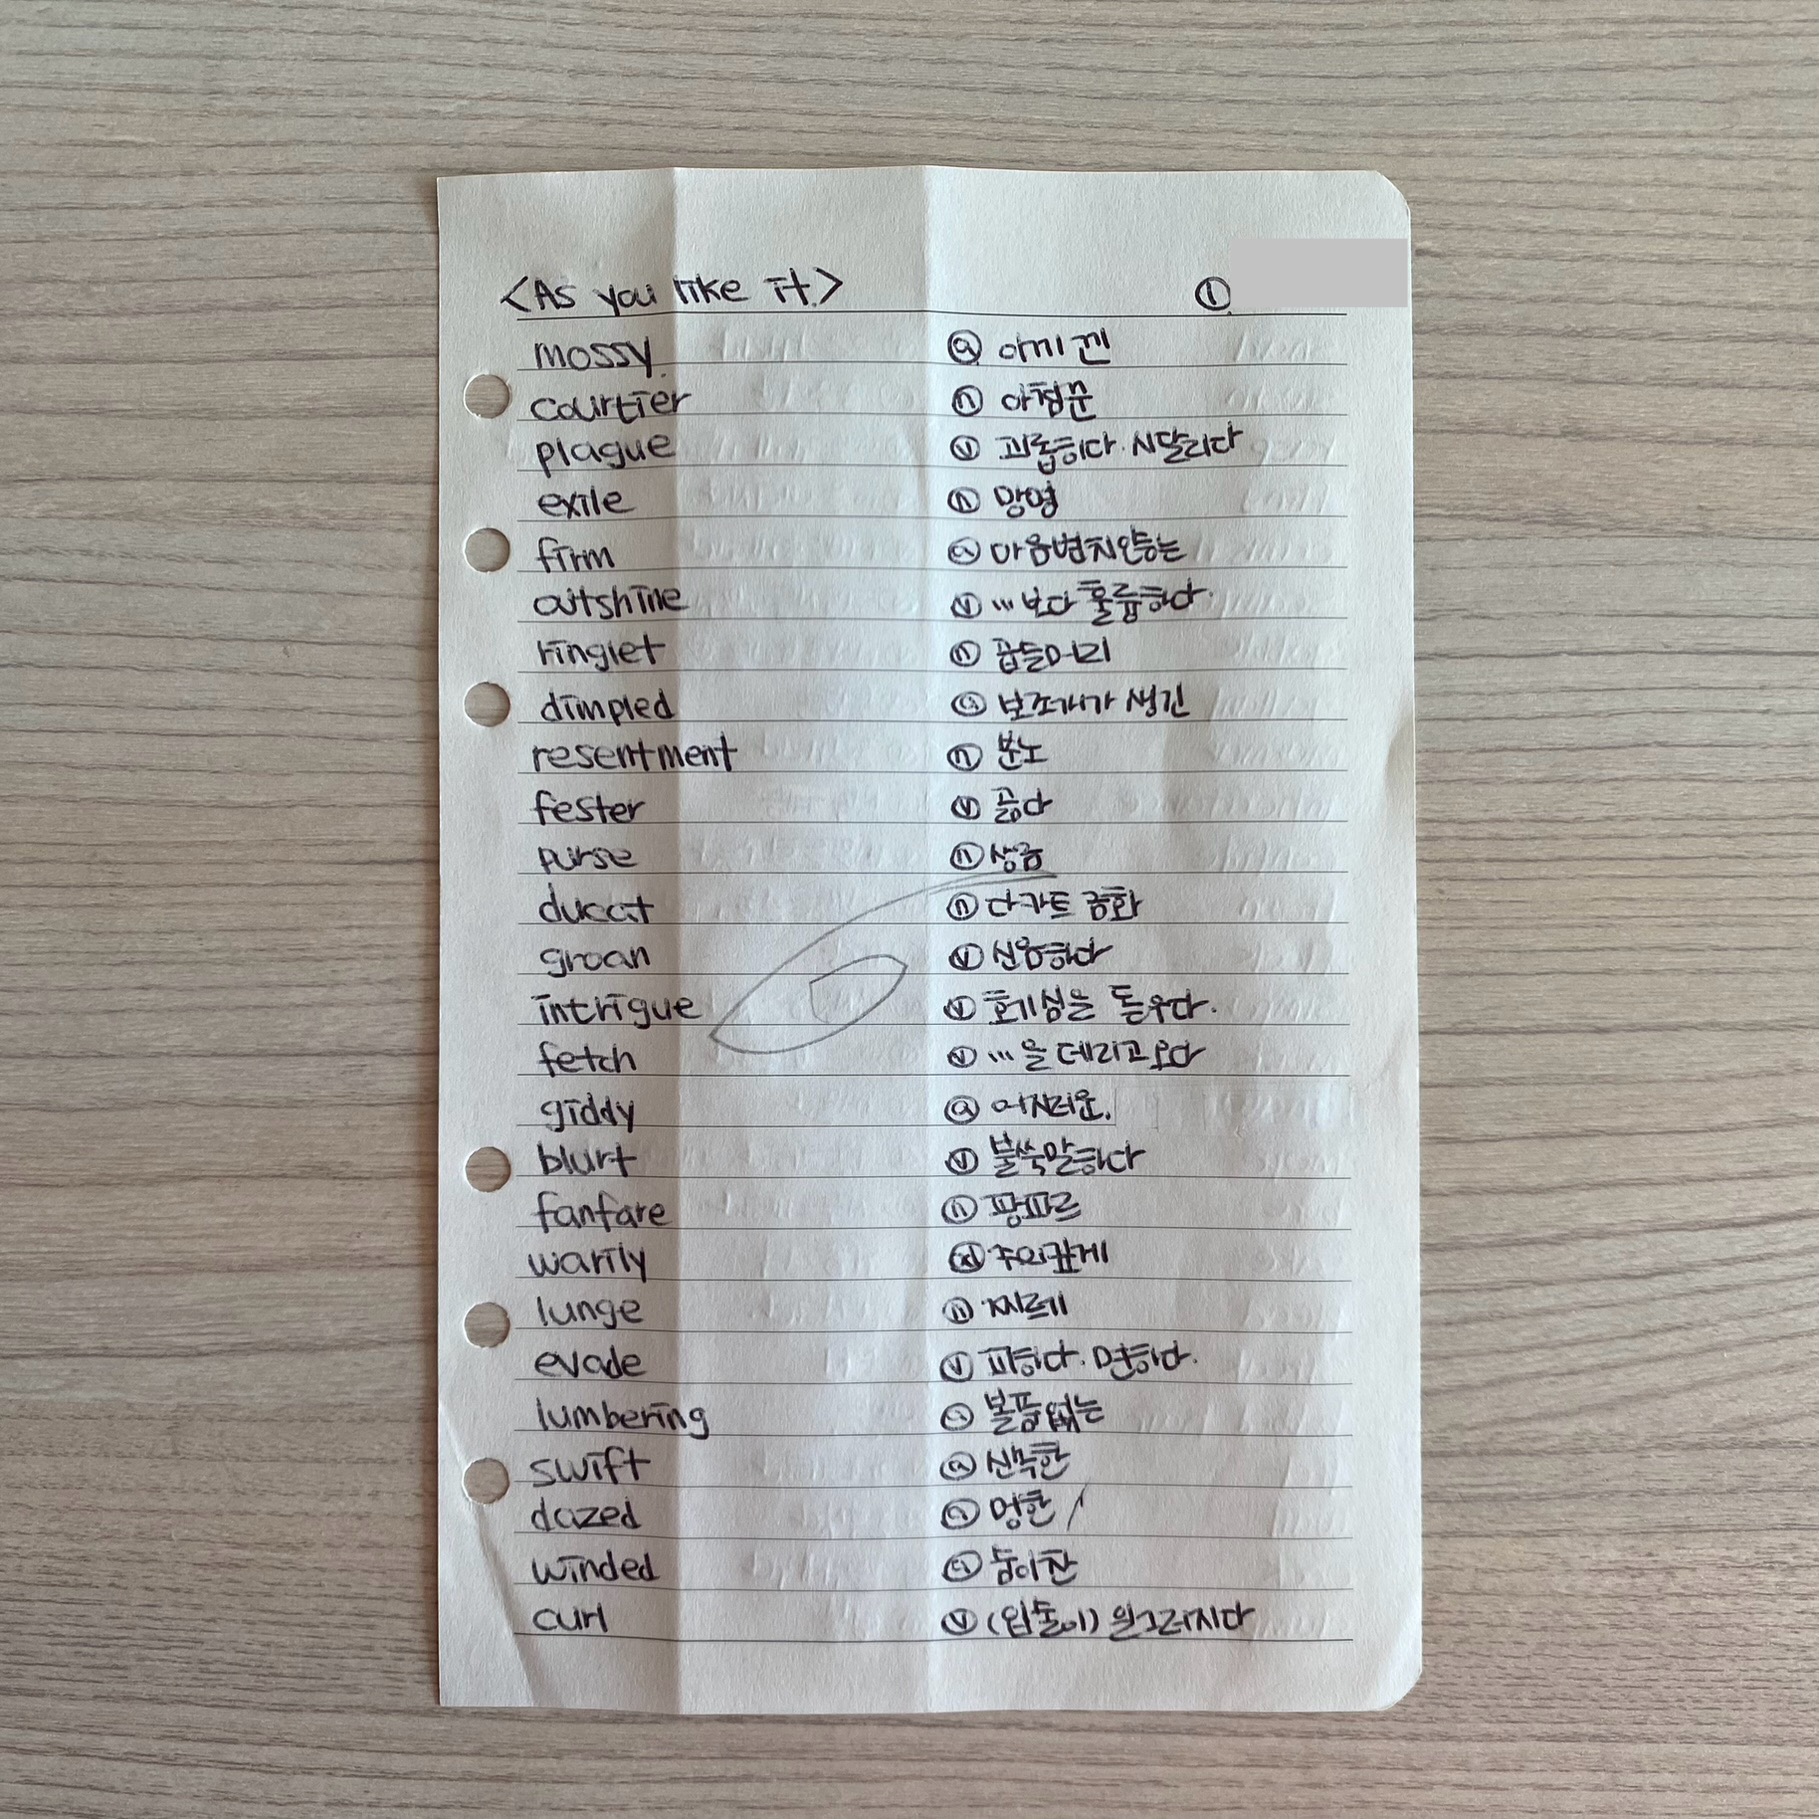 <As you like it.> ①
mossy ⓐ 이끼 낀
courtier ⓝ 아첨꾼
plague ⓥ 괴롭히다. 시달리다
exile ⓝ 망명
firm ⓐ 마음변치않는
outshine ⓥ …보다 훌륭하다.
ringlet ⓝ 곱슬머리
dimpled ⓐ 보조개가 생긴
resentment ⓝ 분노
fester ⓥ 곪다
purse ⓝ 상금
ducat ⓝ 다카트 금화
groan ⓥ 신음하다
intrigue ⓥ 호기심을 돋우다.
fetch ⓥ …을 데리고오다
giddy ⓐ 어지러운.
blurt ⓥ 불쑥말하다
fanfare ⓝ 팡파르
warily ad 주의깊게
lunge ⓝ 찌르기
evade ⓥ 피하다. 면하다.
lumbering ⓐ 볼품없는
swift ⓐ 신속한
dazed ⓐ 멍한
winded ⓐ 숨이찬
curl ⓥ (입술이) 일그러지다